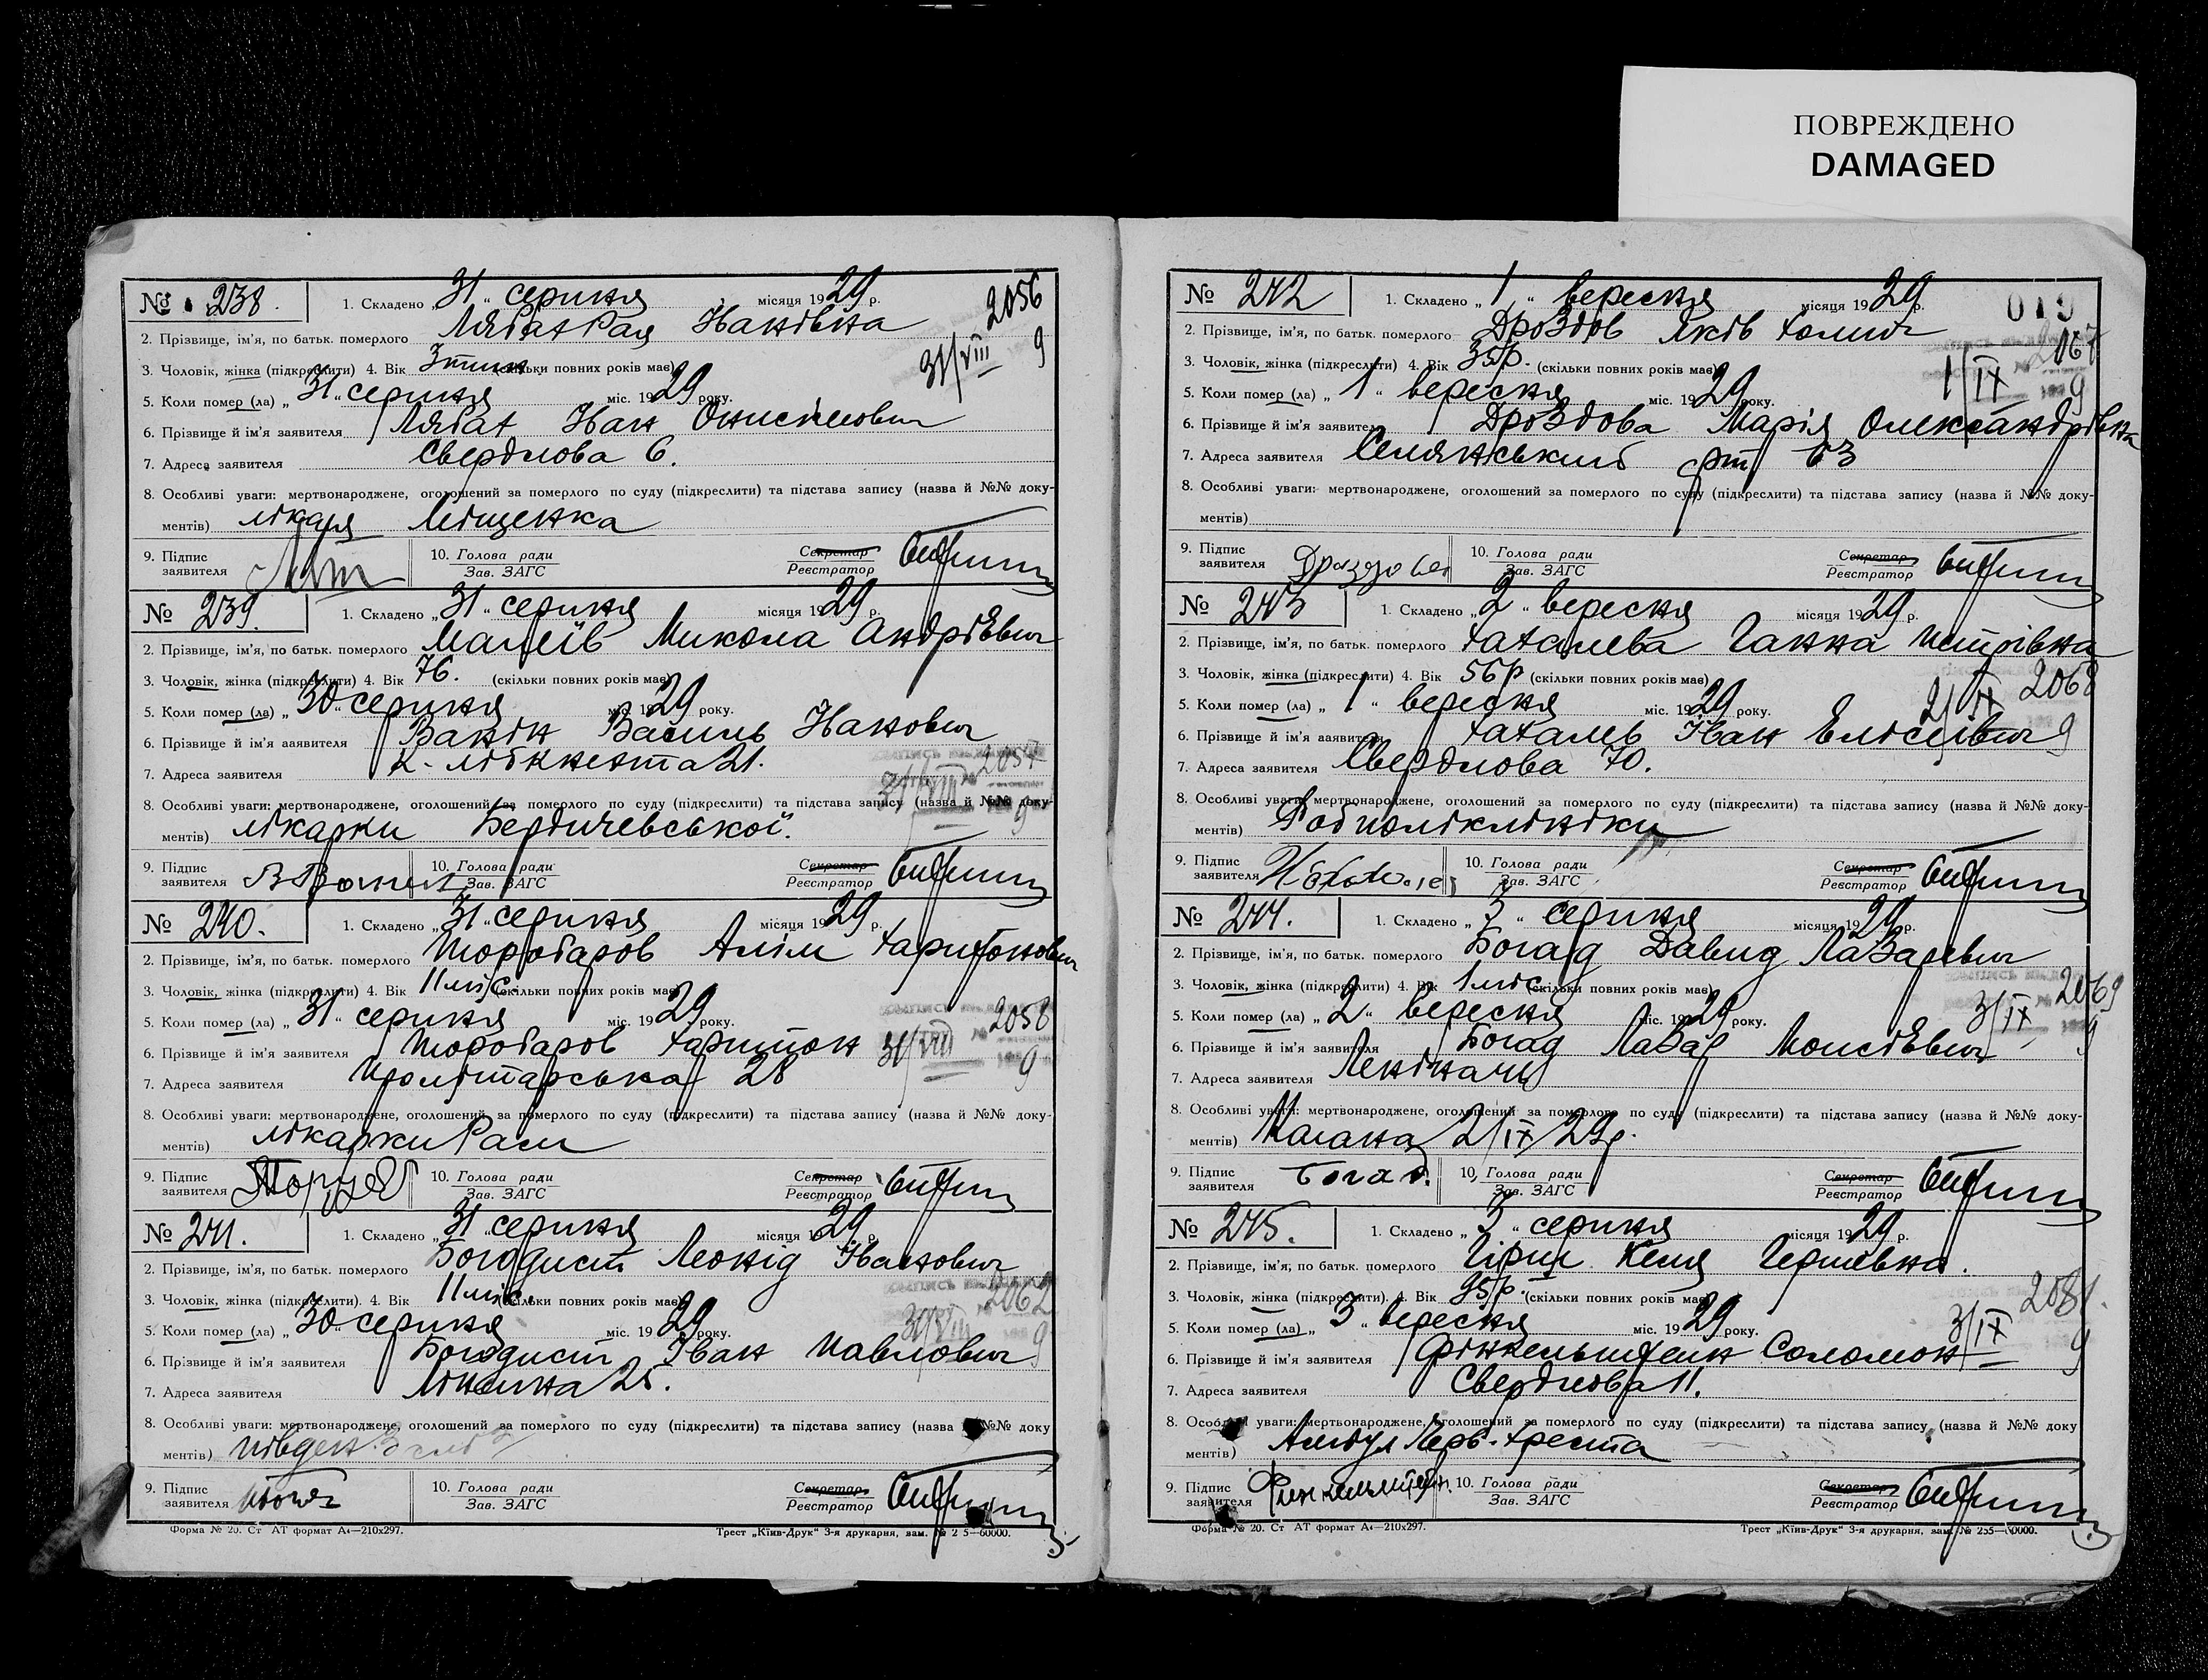 ПОВРЕЖДЕНО
DAMAGED
№ 238.
1. Складено „31“ серпня місяця 1929 р.
2. Прізвище, ім'я, по батьк. померлого Лябах Рая Іванівна
2056
3. Чоловік, жінка (підкреслити) 4. Вік (скільки повних років має)
31/VIII 9
5. Коли помер (ла) „31“ серпня міс. 1929 року.
6. Прізвище й ім'я заявителя Лябах Іван Онисімович
7. Адреса заявителя Свердлова 6.
8. Особливі уваги: мертвонароджене, оголошений за померлого по суду (підкреслити) та підстава запису (назва й №№ доку-
ментів) лікаря Міщенка
9. Підпис заявителя
10. Голова ради Зав. ЗАГС
Секретар Реєстратор
№ 239.
1. Складено „31“ серпня місяця 1929 р.
2. Прізвище, ім'я, по батьк. померлого Малеїв Микола Андрієвич
3. Чоловік, жінка (підкреслити) 4. Вік 76. (скільки повних років має)
5. Коли помер (ла) „30“ серпня міс. 1929 року.
6. Прізвище й ім'я заявителя Ванін Василь Іванович
7. Адреса заявителя К. Лібкнехта 21.
2057
31/VIII 9
8. Особливі уваги: мертвонароджене, оголошений за померлого по суду (підкреслити) та підстава запису (назва й №№ доку-
ментів) лікарки Бердичевської.
9. Підпис заявителя В Ванин
10. Голова ради Зав. ЗАГС
Секретар Реєстратор
№ 240.
1. Складено „31“ серпня місяця 1929 р.
2. Прізвище, ім'я, по батьк. померлого Торобаров Алім Харитонович
3. Чоловік, жінка (підкреслити) 4. Вік 11 міс. (скільки повних років має)
5. Коли помер (ла) „31“ серпня міс. 1929 року.
2058
6. Прізвище й ім'я заявителя Торобаров Харитон
31/VIII 9
7. Адреса заявителя Пролітарська 28
8. Особливі уваги: мертвонароджене, оголошений за померлого по суду (підкреслити) та підстава запису (назва й №№ доку-
ментів) лікарки
9. Підпис заявителя
10. Голова ради Зав. ЗАГС
Секретар Реєстратор
№ 241.
1. Складено „31“ серпня місяця 1929 р.
2. Прізвище, ім'я, по батьк. померлого Богодист Леонід Іванович
3. Чоловік, жінка (підкреслити). 4. Вік 11 міс. (скільки повних років має)
2062
5. Коли помер (ла) „30“ серпня міс. 1929 року.
31/VIII 9
6. Прізвище й ім'я заявителя Богодист Іван Павлович
7. Адреса заявителя 25.
8. Особливі уваги: мертвонароджене, оголошений за померлого по суду (підкреслити) та підстава запису (назва й №№ доку
ментів) Південн.
9. Підпис заявителя
10. Голова ради Зав. ЗАГС
Секретар Реєстратор
Форма № 20. Ст АТ формат А4—210х297.
Трест „Київ-Друк“ 3-я друкарня, зам. № 2 5—60000.
№ 242
1. Складено „1“ вересня місяця 1929 р.
019
2. Прізвище, ім'я, по батьк. померлого Дроздов Яків Хомич
2067
3. Чоловік, жінка (підкреслити) 4. Вік 35р. (скільки повних років має)
1/IX 9
5. Коли помер (ла) „1“ вересня міс. 1929 року.
6. Прізвище й ім'я заявителя Дроздова Марія Олександрівна
7. Адреса заявителя Селянський 63
8. Особливі уваги: мертвонароджене, оголошений за померлого по суду (підкреслити) та підстава запису (назва й №№ доку-
ментів)
9. Підпис заявителя Дроздова
10. Голова ради Зав. ЗАГС
Секретар Реєстратор
№ 243
1. Складено „2“ вересня місяця 1929 р.
2. Прізвище, ім'я, по батьк. померлого Хахалева Ганна Петрівна
3. Чоловік, жінка (підкреслити) 4. Вік 56р (скільки повних років має)
2068
5. Коли помер (ла) „1“ вересня міс. 1929 року.
2/IX 9
6. Прізвище й ім'я заявителя Хахалев Іван Елісеївич
7. Адреса заявителя Свердлова 70.
8. Особливі уваги: мертвонароджене, оголошений за померлого по суду (підкреслити) та підстава запису (назва й №№ доку-
ментів) Робполіклініки
9. Підпис заявителя
10. Голова ради Зав. ЗАГС
Секретар Реєстратор
№ 244.
1. Складено „3“ серпня місяця 1929 р.
2. Прізвище, ім'я, по батьк. померлого Богад Давид Лазаревич
3. Чоловік, жінка (підкреслити) 4. Вік 1 міс. (скільки повних років має)
2069
5. Коли помер (ла) „2“ вересня міс. 1929 року.
3/IX 9
6. Прізвище й ім'я заявителя Богад Лазар Моисієвич
7. Адреса заявителя
8. Особливі уваги: мертвонароджене, оголошений за померлого по суду (підкреслити) та підстава запису (назва й №№ доку-
ментів) Когана 2/IX 29р.
9. Підпис заявителя Богад.
10. Голова ради Зав. ЗАГС
Секретар Реєстратор
№ 245.
1. Складено „3“ серпня місяця 1929 р.
2. Прізвище, ім'я, по батьк. померлого Гершевна.
3. Чоловік, жінка (підкреслити). 4. Вік 95р. (скільки повних років має)
2081.
5. Коли помер (ла) „3“ вересня міс. 1929 року.
3/IX 9
6. Прізвище й ім'я заявителя Фінкельштейн Соломон
7. Адреса заявителя Свердлова 11.
8. Особливі уваги: мертвонароджене, оголошений за померлого по суду (підкреслити) та підстава запису (назва й №№ доку
ментів) Амбул Черв. Хреста
9. Підпис заявителя Финкельштейн.
10. Голова ради Зав. ЗАГС
Секретар Реєстратор
Форма № 20. Ст АТ формат А4—210х297.
Трест „Київ-Друк“ 3-я друкарня, зам. № 255—60000.